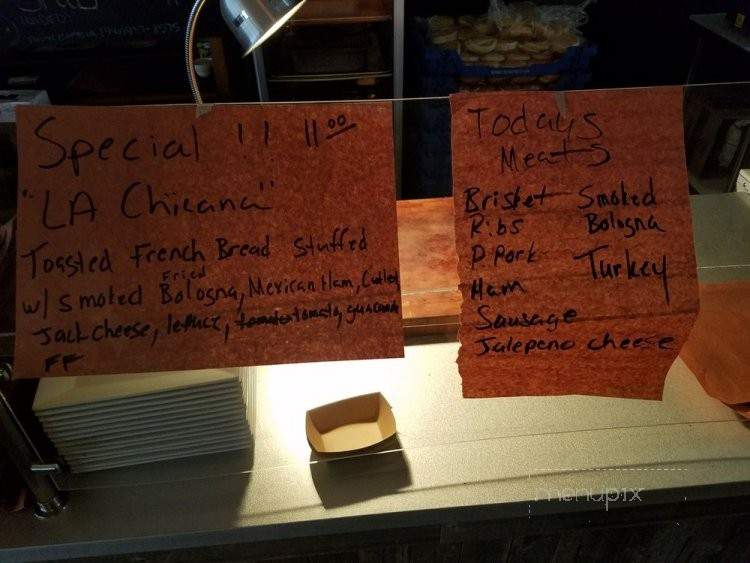 Special !! 11.00
"LA Chicana"
Toasted French Bread stuffed
Fried
w/ smoked Bologna, Mexican Ham,
Jack cheese, lettuce, tomato,
FF
Todays
Meats
Brisket Smoked
Ribs Bologna
P. Pork Turkey
Ham
Sausage
Jalepeno cheese
menupix